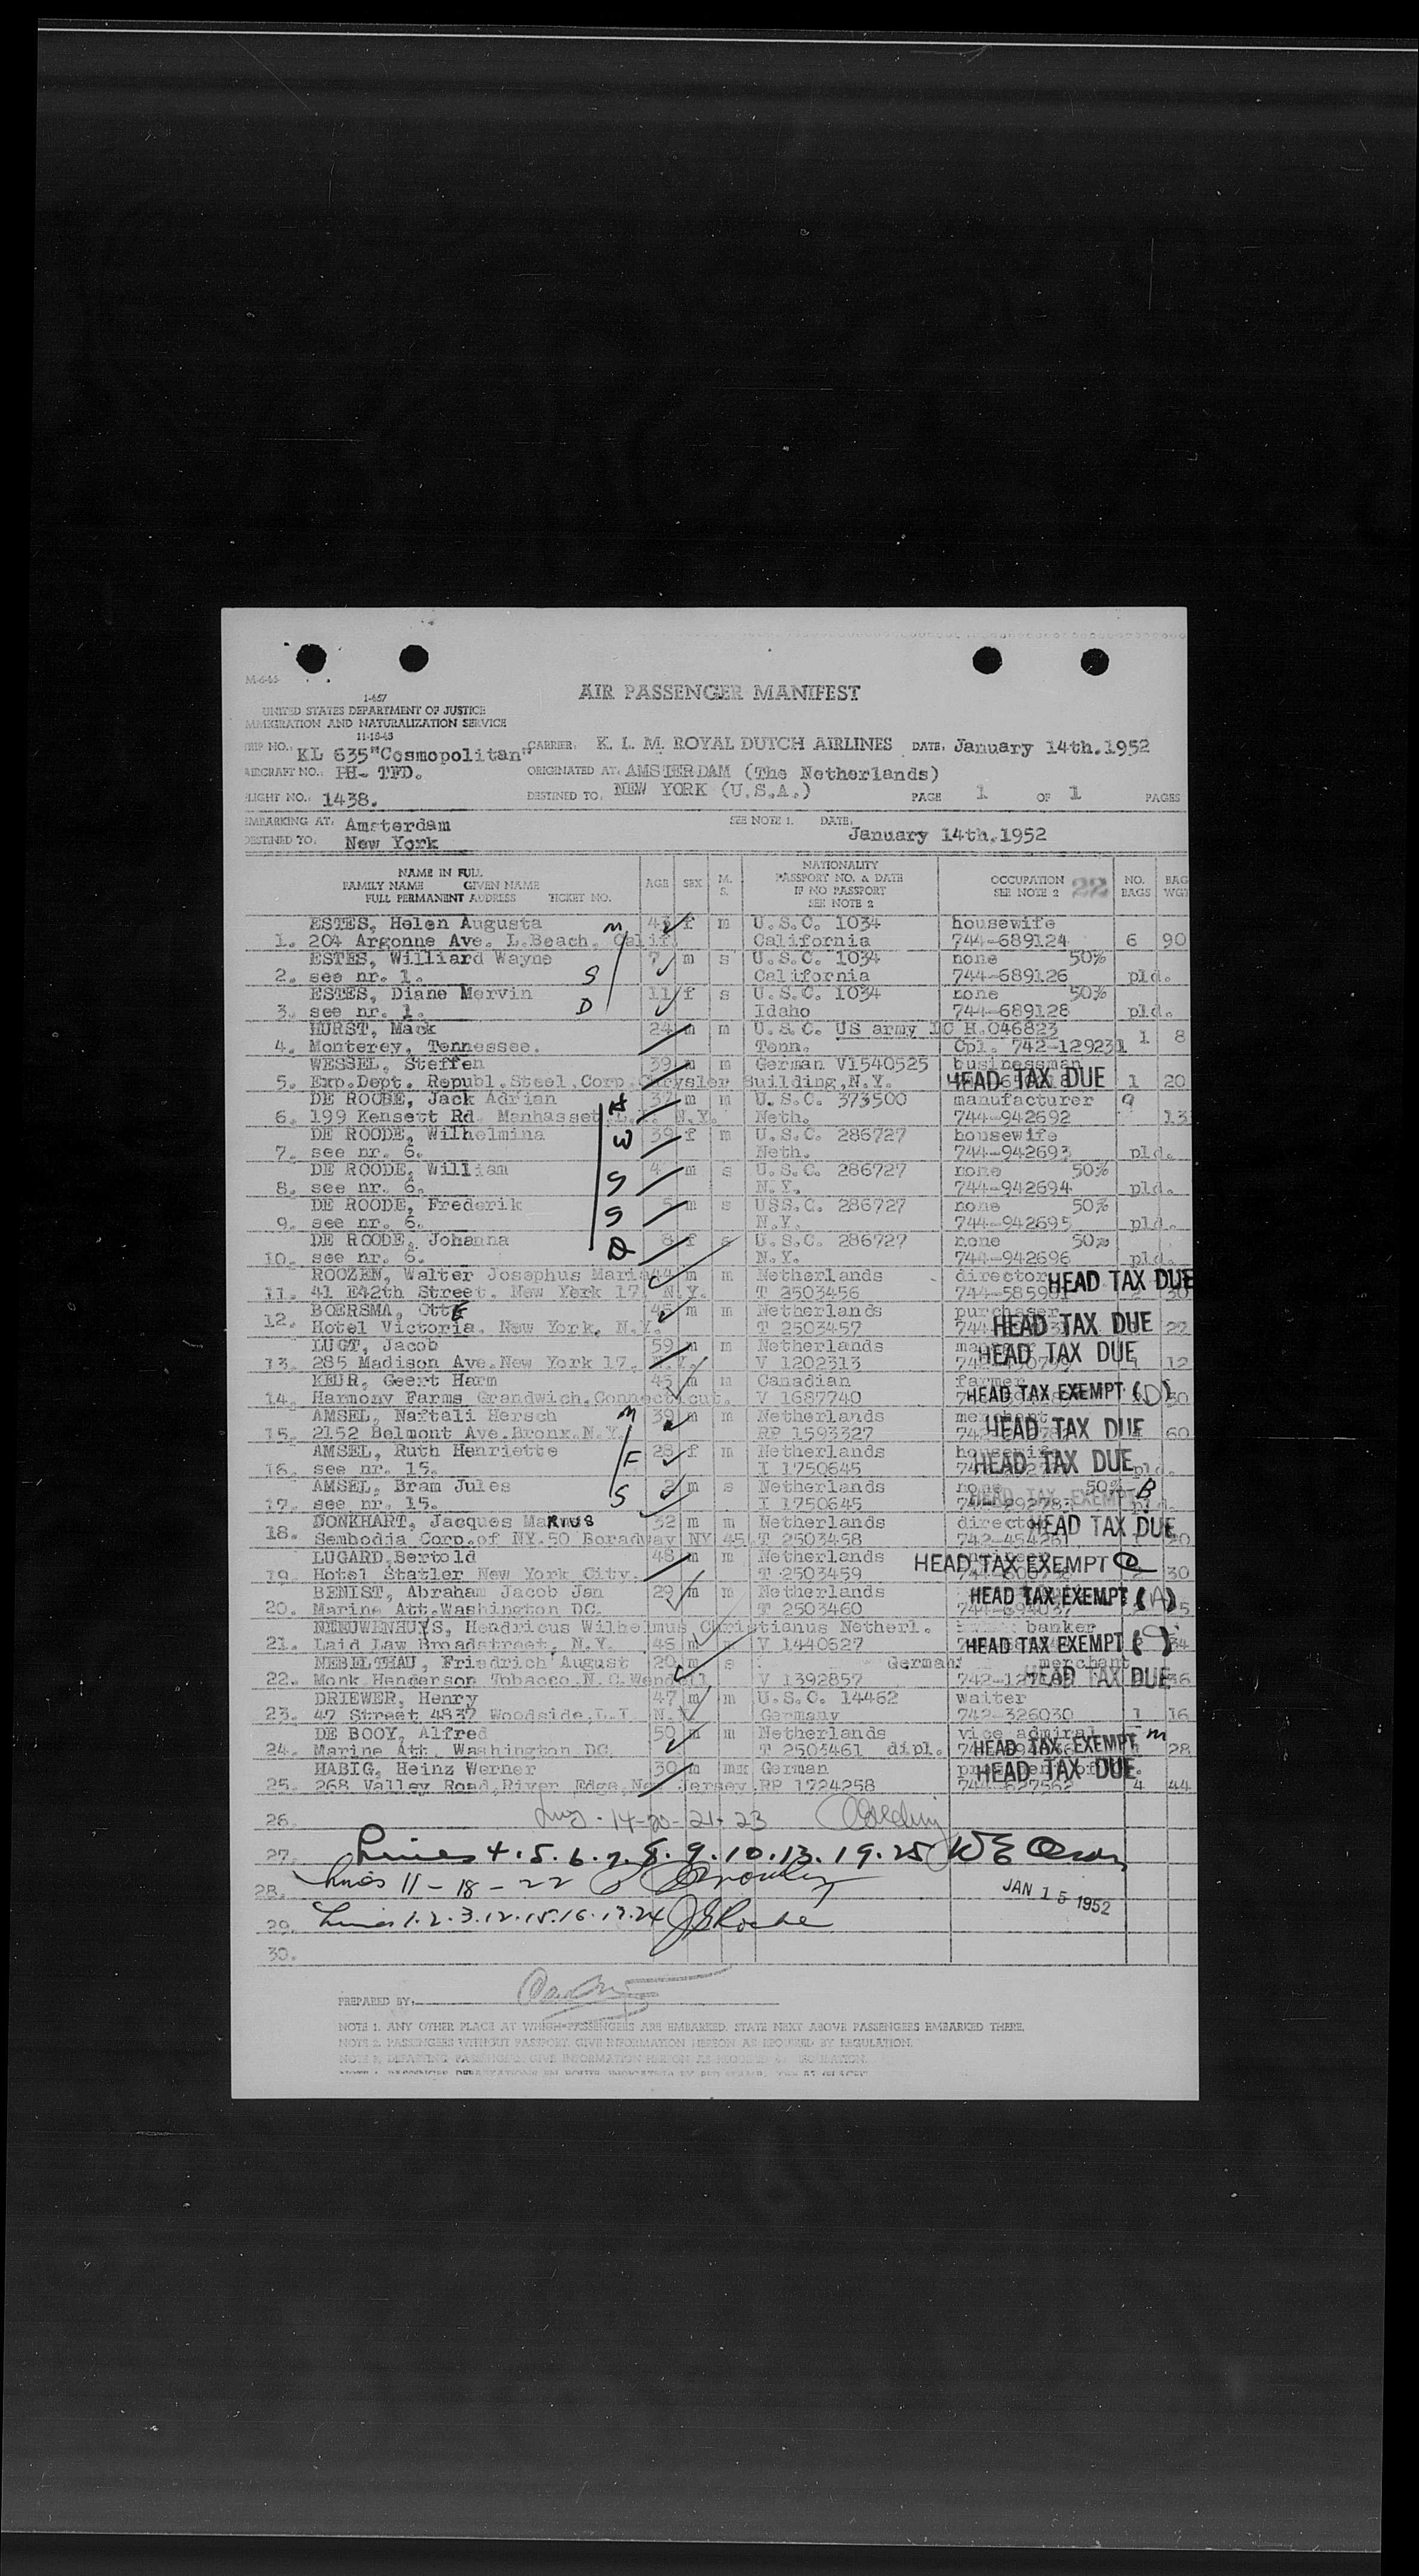 M-6-45
1-457
UNITED STATES DEPARTMENT OF JUSTICE
IMMIGRATION AND NATURALIZATION SERVICE
11-18-48
AIR PASSENGER MANIFEST
TRIP NO.: KL 635"Cosmopolitan" CARRIER: K. L. M. ROYAL DUTCH AIRLINES DATE: January 14th.1952
AIRCRAFT NO.: PH- TFD. ORIGINATED AT: AMSTERDAM (The Netherlands)
FLIGHT NO.: 1438. DESTINED TO: NEW YORK (U.S.A.) PAGE 1 OF 1 PAGES
EMBARKING AT: Amsterdam SEE NOTE 1. DATE: January 14th.1952
DESTINED TO: New York
NAME IN FULL
FAMILY NAME GIVEN NAME
FULL PERMANENT ADDRESS TICKET NO. AGE SEX M. S. NATIONALITY PASSPORT NO. & DATE IF NO PASSPORT SEE NOTE 2 OCCUPATION SEE NOTE 2 22 NO. BAGS BAG WGT
ESTES, Helen Augusta M 43 f m U.S.C. 1034 housewife
1. 204 Argonne Ave. L.Beach. Calif. California 744-689124 6 90
ESTES, Williard Wayne 7 m s U.S.C. 1034 none 50%
2. see nr. 1. S California 744-689126 pld.
ESTES, Diane Mervin 11 f s U.S.C. 1034 none 50%
3. see nr. 1. D Idaho 744-689128 pld.
HURST, Mack 24 m m U.S.C. US army IC H.046823
4. Monterey, Tennessee. Tenn. Cpl. 742-129231 1 8
WESSEL, Steffen 39 m m German V1540525 businessman
5. Exp.Dept. Republ.Steel,Corp.Chrysler Building,N.Y. HEAD TAX DUE 1 20
DE ROODE, Jack Adrian H 37 m m U.S.C. 373500 manufacturer 9
6. 199 Kensett Rd. Manhasset.L.I. N.Y. Neth. 744-942692 13
DE ROODE, Wilhelmina W 39 f m U.S.C. 286727 housewife
7. see nr. 6. Neth. 744-942693 pld.
DE ROODE, William 4 m s U.S.C. 286727 none 50%
8. see nr. 6. S N.Y. 744-942694 pld.
DE ROODE, Frederik 5 m s USS.C. 286727 none 50%
9. see nr. 6. S N.Y. 744-942695 pld.
DE ROODE, Johanna 8 f s U.S.C. 286727 none 50%
10. see nr. 6. D N.Y. 744-942696 pld.
ROOZEN, Walter Josephus Maria 44 m m Netherlands director HEAD TAX DUE
11. 41 E42th Street. New York 17. N.Y. T 2503456 30
BOERSMA, OttE 45 m m Netherlands purchaser
12. Hotel Victoria. New York, N.Y. T 2503457 HEAD TAX DUE 27
LUGT, Jacob 59 m m Netherlands HEAD TAX DUE
13. 285 Madison Ave.New York 17. N.Y. V 1202313 12
KEUR, Geert Harm 45 m m Canadian farmer
14. Harmony Farms Grandwich.Connecticut. V 1687740 HEAD TAX EXEMPT (D) 50
AMSEL, Naftali Hersch M 39 m m Netherlands merchant
15. 2152 Belmont Ave.Bronx.N.Y. RP 1593327 HEAD TAX DUE 60
AMSEL, Ruth Henriette 28 f m Netherlands housewife
16. see nr. 15. F I 1750645 HEAD TAX DUE pld.
AMSEL, Bram Jules 2 m s Netherlands none 50% B
17. see nr. 15. S I 1750645 HEAD TAX EXEMPT pld.
DONKHART, Jacques MaRnus 32 m m Netherlands director HEAD TAX DUE
18. Sembodja Corp.of NY.50 Boradway NY 45 T 2503458 742-454261 20
LUGARD,Bertold 48 m m Netherlands HEAD TAX EXEMPT
19. Hotel Statler New York City. T 2503459 30
BENIST, Abraham Jacob Jan 29 m m Netherlands HEAD TAX EXEMPT (A)
20. Marine Att.Washington DC. T 2503460 744-694037
NIEUWENHUYS, Hendricus Wilhelmus Christianus Netherl. banker
21. Laid Law Broadstreet, N.Y. 46 m V 1440627 HEAD TAX EXEMPT (C) 34
NEBELTHAU, Friedrich August 20 m s German merchant
22. Monk Henderson Tobacco.N.C.Wendell V 1392857 HEAD TAX DUE 36
DRIEWER, Henry 47 m m U.S.C. 14462 waiter
23. 47 Street 4837 Woodside,L.I. N.Y. Germany 742-326030 1 16
DE BOOY, Alfred 50 m m Netherlands vice admiral m
24. Marine Att. Washington DC. T 2503461 dipl. HEAD TAX EXEMPT 28
HABIG, Heinz Werner 30 m mx German HEAD TAX DUE
25. 268 Valley Road,River Edge,New Jersey.RP 1724258 744-627562 4 44
26. 14-20-21-23
27. Lines 4.5.6.7.8.9.10.13.19.25 W E Olson
28. Lines 11-18-22 JAN 15 1952
29. Lines 1.2.3.12.15.16.17.24 J Roche
30.
PREPARED BY:
NOTE 1. ANY OTHER PLACE AT WHICH PASSENGERS ARE EMBARKED. STATE NEXT ABOVE PASSENGERS EMBARKED THERE.
NOTE 2. PASSENGERS WITHOUT PASSPORT, GIVE INFORMATION HEREON AS REQUIRED BY REGULATION.
NOTE 3. DEPARTING PASSENGERS GIVE INFORMATION HEREON AS REQUIRED BY REGULATION.